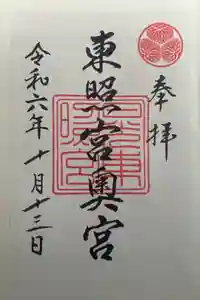 奉拝
東照宮奥宮
令和六年十月十三日